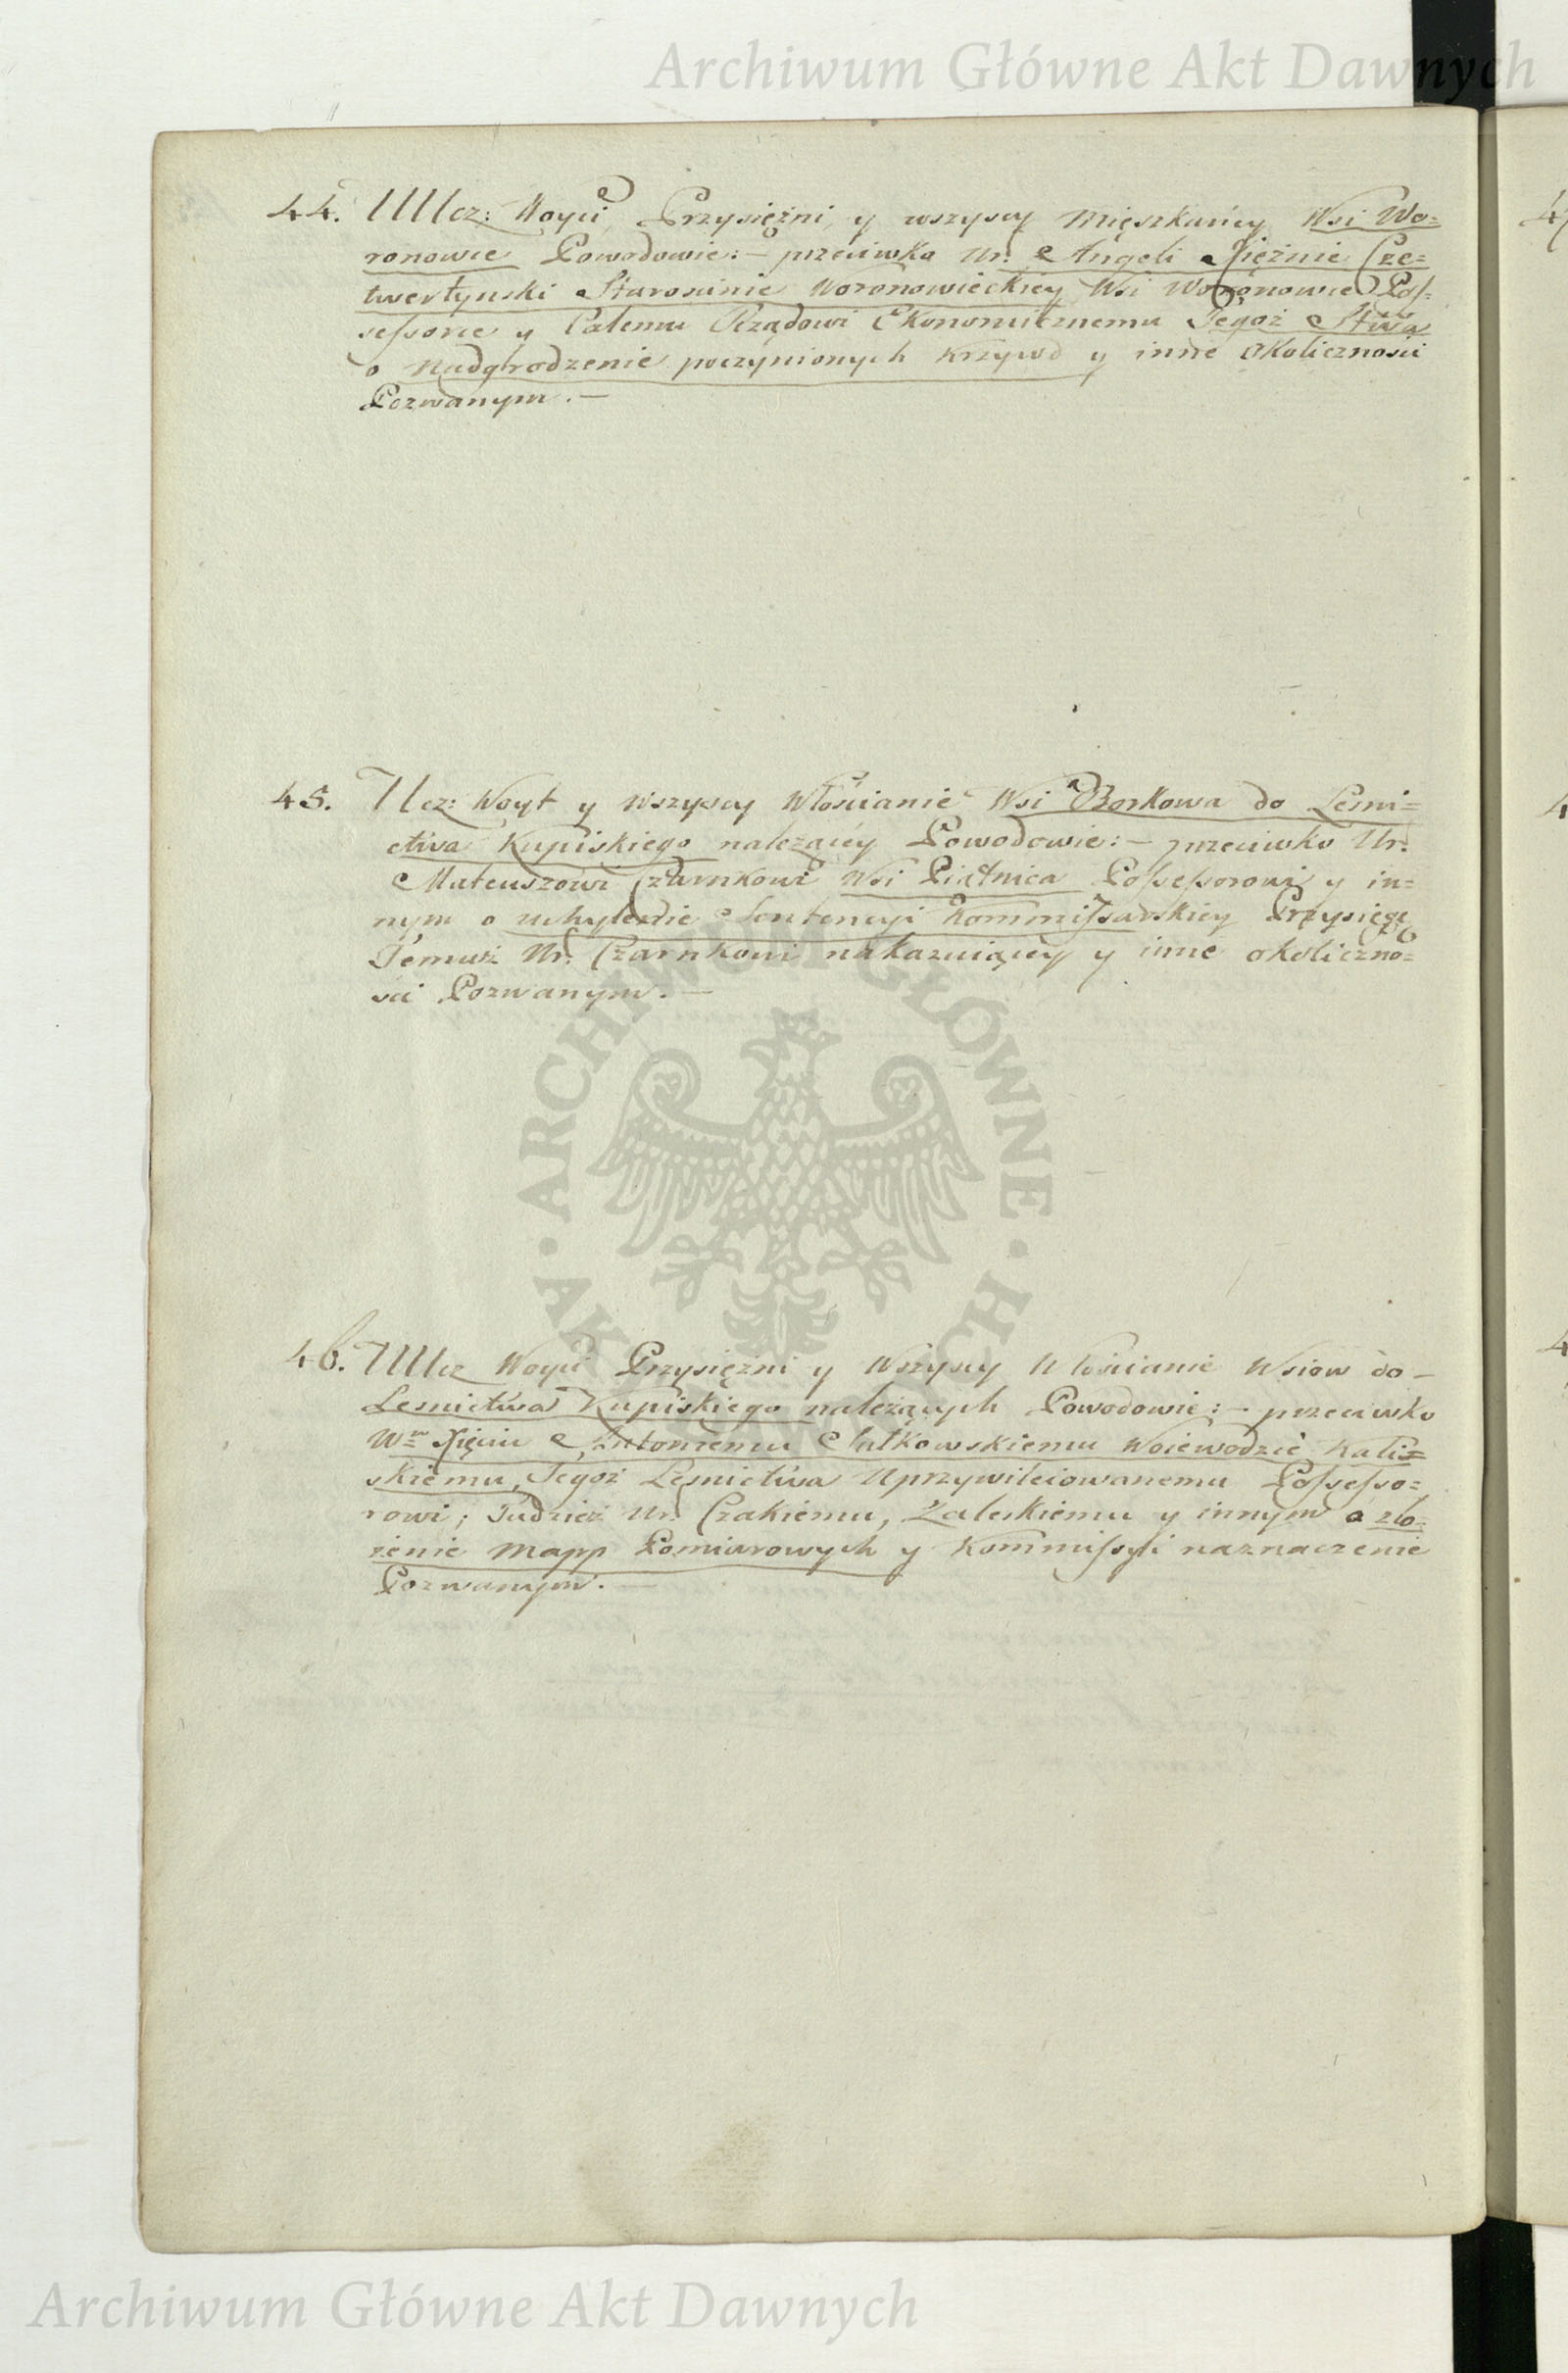 Archiwum Główne Akt Dawnych
44. UUcz: Woyci, Przysięźni, y wszyscy Mięszkańcy Wsi Wo=
ronowce Powodowie:– przeciwko Ur: Angeli Xiężnie Cze=
twertyński Starościnie Woronowieckiey Wsi Woronowce Pos=
sessorce y Całemu Rządowi Ekonomicznemu Tegoż Stwa
o Nadgrodzenie poczynionych Krzywd y inne Okoliczności
Pozwanym.–
45. Ucz: Woyt y Wszyscy Włościanie Wsi Borkowa do Leśni=
ctwa Kupiskiego należącey Powodowie:– przeciwko Ur:
Mateuszowi Czarnkowi Wsi Piątnica Possessorowi y in=
nym o uchylenie Sentencyi Kommissarskiey Przysięgę
Temuż Ur: Czarnkowi nakazuiącey y inne okoliczno=
ści Pozwanym.–
46. UUcz Woyci Przysięźni y Wszyscy Włościanie Wsiow do–
Leśnictwa Kupiskiego należących Powodowie:– przeciwko
Wm Xięciu Antoniemu Sułkowskiemu Woiewodzie Kali=
skiemu, Tegoż Leśnictwa Uprzywileiowanemu Possesso=
rowi; Tudzież Ur: Czakiemu, Zaleskiemu y innym o zło=
żenie Mapp Pomiarowych y Kommissyi naznaczenie
Pozwanym.–
ARCHIWUM GŁÓWNE AKT DAWNYCH
Archiwum Główne Akt Dawnych